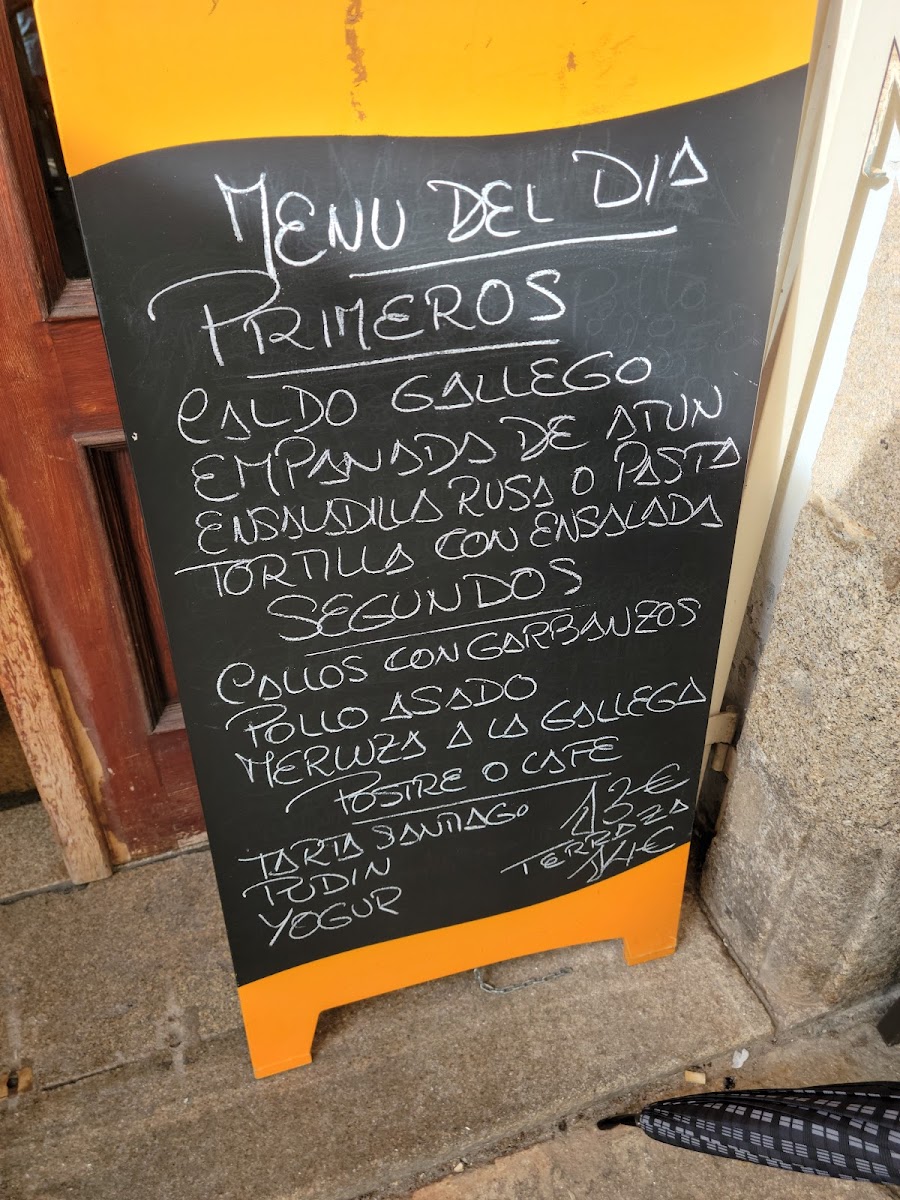 MENU DEL DIA
PRIMEROS
CALDO GALLEGO
EMPANADA DE ATUN
ENSALADILLA RUSA O PASTA
TORTILLA CON ENSALADA
SEGUNDOS
CALLOS CON GARBANZOS
POLLO ASADO
MERLUZA A LA GALLEGA
POSTRE O CAFE
TARTA SANTIAGO 13€
PUDIN TERRAZA
YOGUR 14€